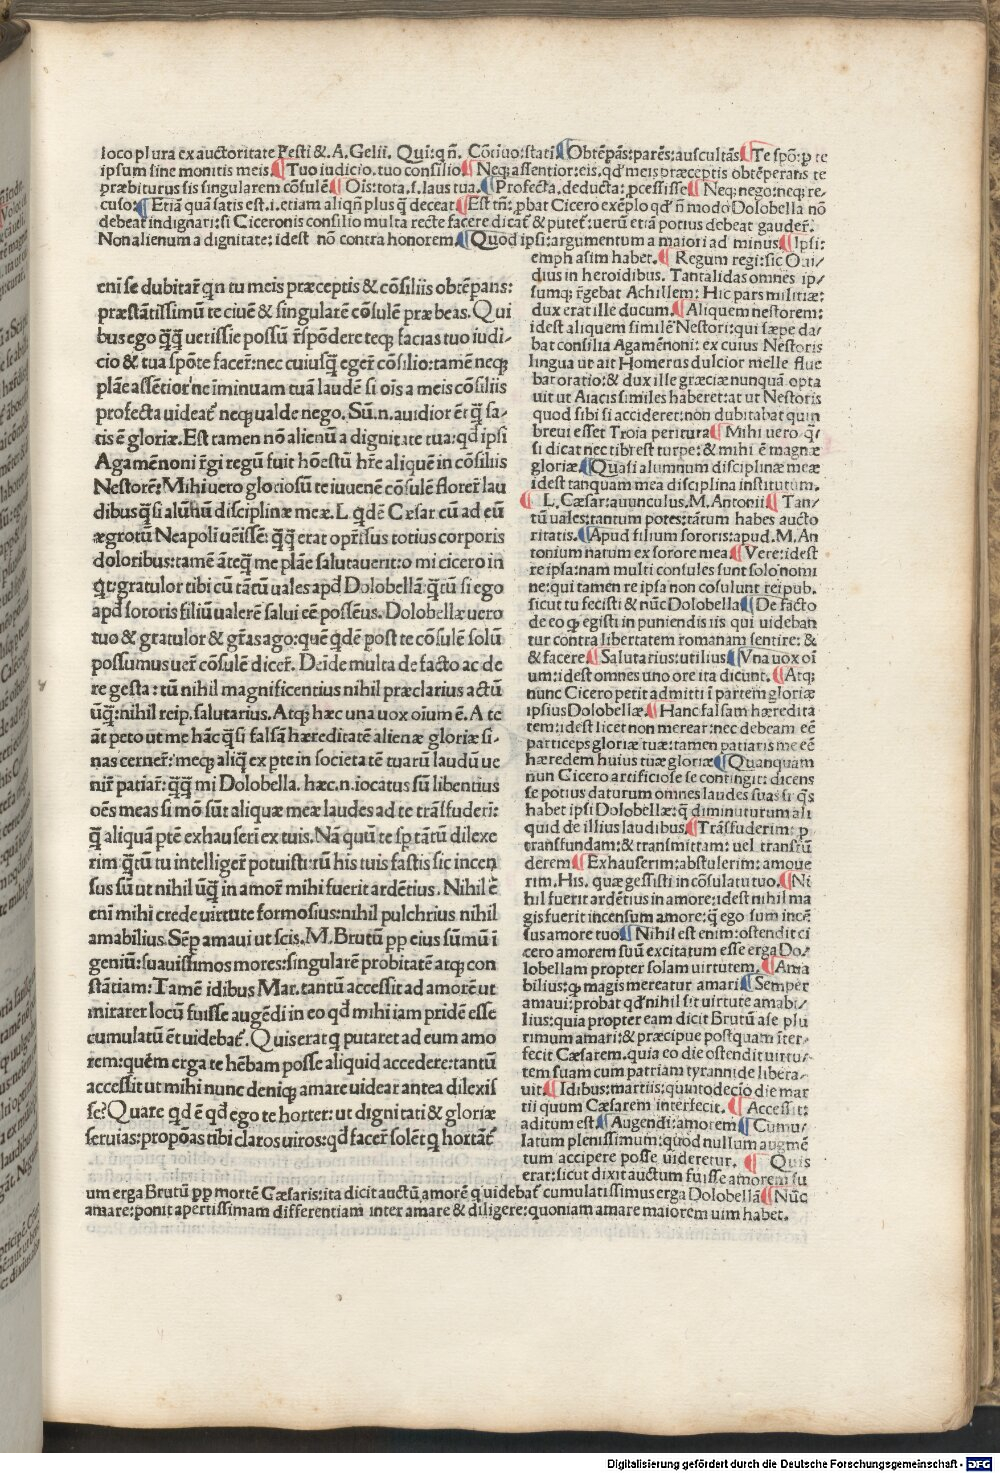 loco plura ex auctoritate Festi &. A. Gelii. Qui: qñ. Cõtiuo: stati ¶ Obtẽpãs: parẽs: auscultãs ¶ Te spõ: ꝑ te
ipsum sine monitis meis ¶ Tuo iudicio. tuo consilio ¶ Neqꝫ assentior: eis, qđ meis præceptis obtẽperaris te
præbiturus sis singularem cõsulẽ ¶ Oĩs: tota. s. laus tua. ¶ Profecta. deducta: ꝓcessisse ¶ Neqꝫ: nego: neqꝫ re/
cuso: ¶ Etiã quã satis est. i. etiam aliqñ plus ꝗ̃ deceat ¶ Est tñ: ꝓbat Cicero exẽplo qđ ñ modo Dolobella nõ
debeat indignari: si Ciceronis consilio multa recte facere dicat̃ & putet̃: uerũ etiã potius debeat gauder̃.
Non alienum a dignitate: idest nõ contra honorem. ¶ Quod ipsi: argumentum a maiori ad minus. ¶ Ipsi:
emphasim habet. ¶ Regum regi: sic Oui/
dius in heroidibus. Tantalidas omnes ip/
sumqꝫ r̃gebat Achillem: Hic pars militiæ:
dux erat ille ducum. ¶ Aliquem nestorem:
idest aliquem similẽ Nestori: qui sæpe da/
bat consilia Agamẽnoni: ex cuius Nestoris
lingua ut ait Homerus dulcior melle flue
bat oratio: & dux ille græciæ nunquã opta
uit ut Aiacis similes haberet: at ut Nestoris
quod sibi si accideret: non dubitabat quin
breui esset Troia peritura ¶ Mihi uero ꝗ̃/
si dicat nec tibi est turpe: & mihi ẽ magnæ
gloriæ ¶ Quasi alumnum disciplinæ meæ
idest tanquam mea disciplina institutum.
¶ L. Cæsar: auunculus. M. Antonii ¶ Tan/
tũ uales: tantum potes: tãtum habes aucto
ritatis. ¶ Apud filium sororis: apud. M. An
tonium natum ex sorore mea ¶ Vere: idest
re ipsa: nam multi consules sunt solo nomi
ne: qui tamen re ipsa non cõsulunt reipub.
sicut tu fecisti & nũc Dolobella ¶ De facto
de eo qꝫ egisti in puniendis iis qui uideban
tur contra libertatem romanam sentire: &
& facere ¶ Salutarius: utilius ¶ Vna uox oĩ
um: idest omnes uno ore ita dicunt. ¶ Atqꝫ
nunc Cicero petit admitti ĩ partem gloriæ
ipsius Dolobellæ. ¶ Hanc falsam hæredita
tem: idest licet non merear: nec debeam eẽ
particeps gloriæ tuæ: tamen patiaris me eẽ
hæredem huius tuæ gloriæ ¶ Quanquam
nun Cicero artificiose se contingit: dicens
se potius daturum omnes laudes suas si ꝗs
habet ipsi Dolobellæ: ꝗ̃ diminuturum ali
quid de illius laudibus ¶ Trãsfuderim: ꝑ
transfundam: & transmittam: uel transtũ
derem ¶ Exhauserim: abstulerim: amoue
rim. His. quæ gessisti in cõsulatu tuo. ¶ Ni
hil fuerit ardẽtius in amore: idest nihil ma
gis fuerit incensum amore: ꝗ̃ ego sum incẽ
sus amore tuo ¶ Nihil est enim: ostendit ci
cero amorem suũ excitatum esse erga Do/
lobellam propter solam uirtutem. ¶ Ama
bilius: qꝫ magis mereatur amari ¶ Semper
amaui: probat qđ nihil sit uirtute amabi/
lius: quia propter eam dicit Brutũ a se plu
rimum amari: & præcipue postquam ĩter/
fecit Cæsarem. quia eo die ostendit uirtu/
tem suam cum patriam tyrannide libera/
uit. ¶ Idibus: martiis: quĩtodecĩo die mar
tii quum Cæsarem interfecit. ¶ Accessit:
aditum est ¶ Augendi: amorem ¶ Cumu/
latum plenissimum: quod nullum augmẽ
tum accipere posse uideretur. ¶ Quis
erat: sicut dixit auctum fuisse amorem su
eni se dubitar̃ ꝗn tu meis præceptis & cõsiliis obtẽpans:
præstãtissimũ te ciuẽ & singularẽ cõsulẽ præbeas. Qui
bus ego ꝗ̃ꝗ̃ uerissie possũ r̃spõdere teqꝫ facias tuo iudi/
cio & tua spõte facer̃: nec cuiusꝗ̃ eger̃ cõsilio: tamẽ neqꝫ
plãe assẽtior ne ĩminuam tuã laudẽ si oĩs a meis cõsiliis
profecta uideat̃ neqꝫ ualde nego. Sũ. n. auidior ẽt ꝗ̃ sa/
tis ẽ gloriæ. Est tamen nõ alienũ a dignitate tua: qđ ipsi
Agamẽnoni r̃gi regũ fuit hõestũ hr̃e aliquẽ in cõsiliis
Nestorẽ: Mihi uero gloriosũ te iuuenẽ cõsulẽ florer̃ lau
dibus ꝗ̃si alũnũ disciplinæ meæ. L qđẽ Cæsar cũ ad eũ
ægrotũ Neapoli uẽissẽ: ꝗ̃ꝗ̃ erat opr̃ssus totius corporis
doloribus: tamẽ ãteqꝫ me plãe salutauerit: o mi cicero in
qt: gratulor tibi cũ tãtũ uales apđ Dolobellã: ꝗ̃tũ si ego
apđ sororis filiũ ualerẽ salui eẽ possẽus. Dolobellæ uero
tuo & gratulor & gr̃as ago: quẽ qđẽ post te cõsulẽ solũ
possumus uer̃ cõsulẽ dicer̃. Deĩde multa de facto ac de
re gesta: tũ nihil magnificentius nihil præclarius actũ
ũꝗ̃: nihil reip. salutarius. Atqꝫ hæc una uox oĩum ẽ. A te
ãt peto ut me hãc ꝗ̃si falsã hæreditatẽ alienæ gloriæ si/
nas cerner̃: meqꝫ aliꝗ̃ ex pte in societatẽ tuarũ laudũ ue
nir̃ patiar̃: ꝗ̃ꝗ̃ mi Dolobella. hæc. n. iocatus sũ libentius
oẽs meas si mõ sũt aliquæ meæ laudes ad te trãsfuderĩ:
ꝗ̃ aliquã ptẽ exhauserĩ ex tuis. Nã quũ te sꝑ tãtũ dilexe
rim ꝗ̃tũ tu intelliger̃ potuisti: tũ his tuis factis sic incen
sus sũ ut nihil ũꝗ̃ in amor̃ mihi fuerit ardẽtius. Nihil ẽ
enĩ mihi crede uirtute formosius: nihil pulchrius nihil
amabilius. Sẽꝑ amaui ut scis. M. Brutũ ꝓꝑ eius sũmũ ĩ
geniũ: suauissimos mores: singularẽ probitatẽ atqꝫ con
stãtiam: Tamẽ idibus Mar. tantũ accessit ad amorẽ ut
miraret locũ fuisse augẽdi in eo qđ mihi iam pridẽ esse
cumulatũ ẽt uidebat̃. Quis erat ꝗ putaret ad eum amo
rem: quẽm erga te hẽbam posse aliquid accedere: tantũ
accessit ut mihi nunc deniqꝫ amare uidear antea dilexis
se? Quare qđ ẽ qđ ego te horter: ut dignitati & gloriæ
seruias: propõas tibi claros uiros: qđ facer̃ solẽt ꝗ hortãt̃
um erga Brutũ ꝓꝑ mortẽ Cæsaris: ita dicit auctũ amorẽ ꝗ uidebat̃ cumulatissimus erga Dolobellã ¶ Nũc
amare: ponit apertissimam differentiam inter amare & diligere: quoniam amare maiorem uim habet.
Digitalisierung gefördert durch die Deutsche Forschungsgemeinschaft - DFG